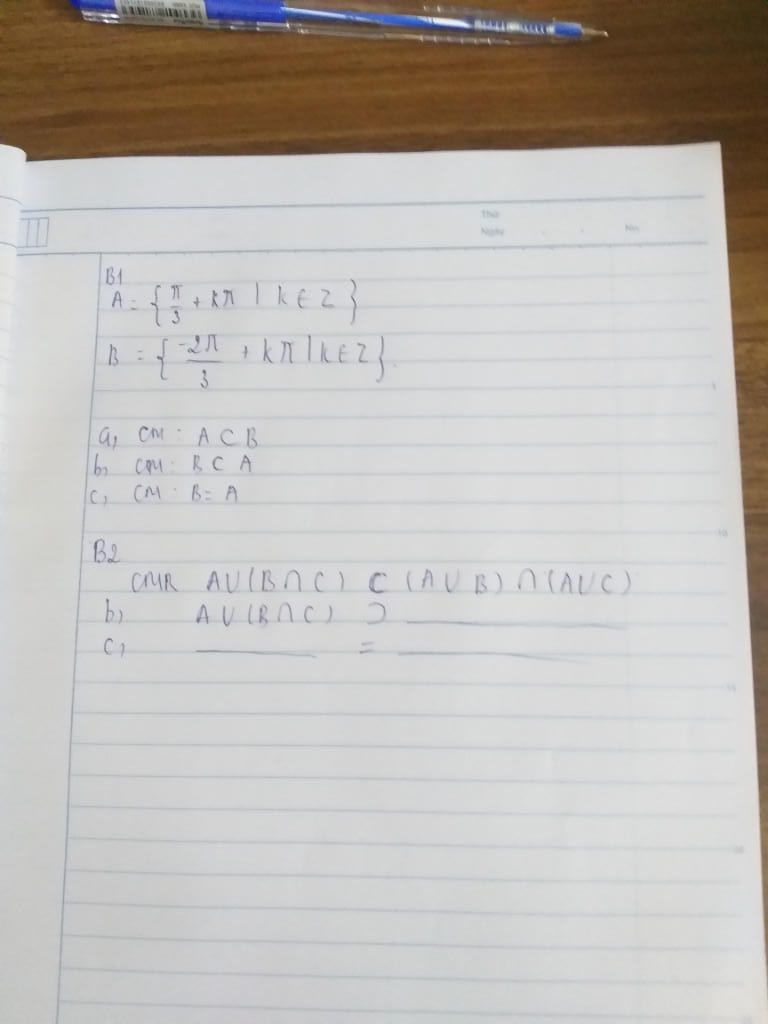 Thứ
Ngày No.
B1
A = { π/3 + kπ | k ∈ Z }
B = { -2π/3 + kπ | k ∈ Z }.
a, CM : A ⊂ B
b, CM : B ⊂ A
c, CM : B = A
B2
CMR A ∪ (B ∩ C) ⊂ (A ∪ B) ∩ (A ∪ C)
b, A ∪ (B ∩ C) ⊃ ________
c, ________ = ________